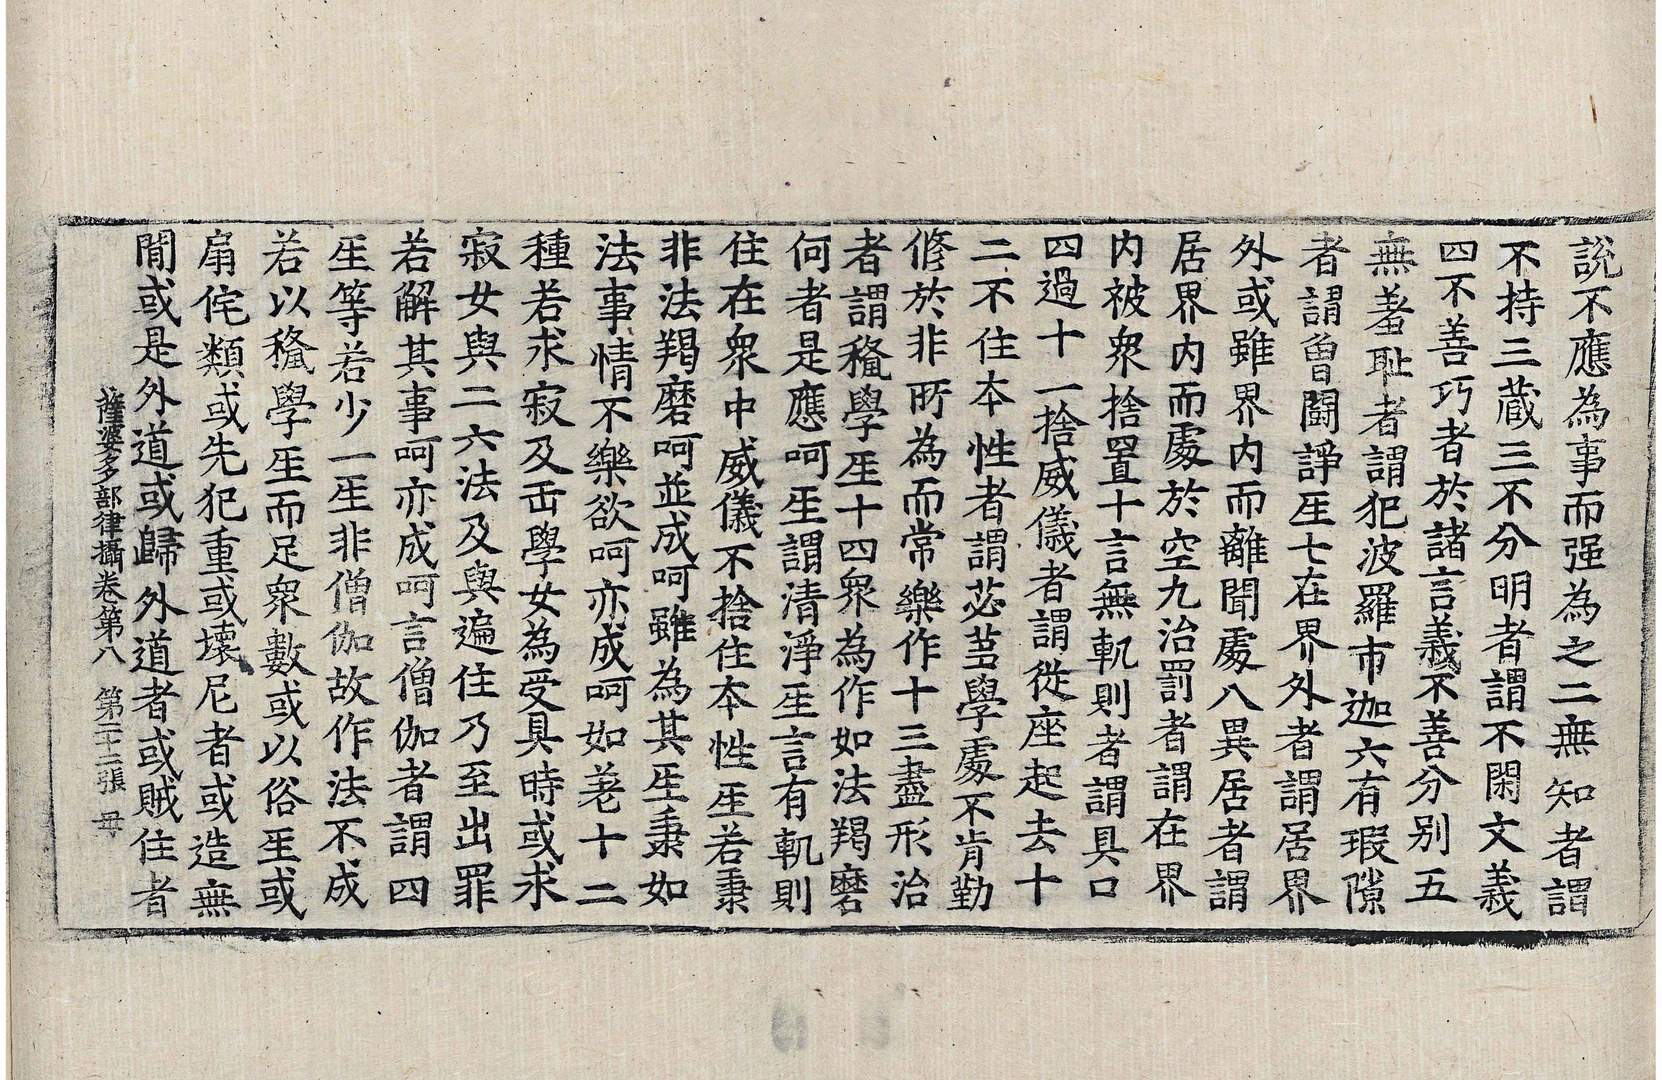 說不應為事而强為之二無知者謂
不持三藏三不分明者謂不閑文義
四不善巧者於諸言義不善分別五
無羞耻者謂犯波羅市迦六有瑕隙
者謂曾鬪諍生七在界外者謂居界
外或雖界內而離聞處八異居者謂
居界內而處於空九治罰者謂在界
內被衆捨置十言無軌則者謂具口
四過十一捨威儀者謂從座起去十
二不住本性者謂苾蒭學處不肯勤
修於非所為而常樂作十三盡形治
者謂穳學生十四衆為作如法羯磨
何者是應呵生謂清淨生言有軌則
住在衆中威儀不捨住本性生若秉
非法羯磨呵並成呵雖為其生秉如
法事情不樂欲呵亦成呵如差十二
種若求寂及正學女為受具時或求
寂女與二六法及與遍住乃至出罪
若解其事呵亦成呵言僧伽者謂四
生等若少一生非僧伽故作法不成
若以穳學生而足衆數或以俗生或
扇侘類或先犯重或壞尼者或造無
間或是外道或歸外道者或賊住者
薩婆多部律攝卷第八 第二十三張 母